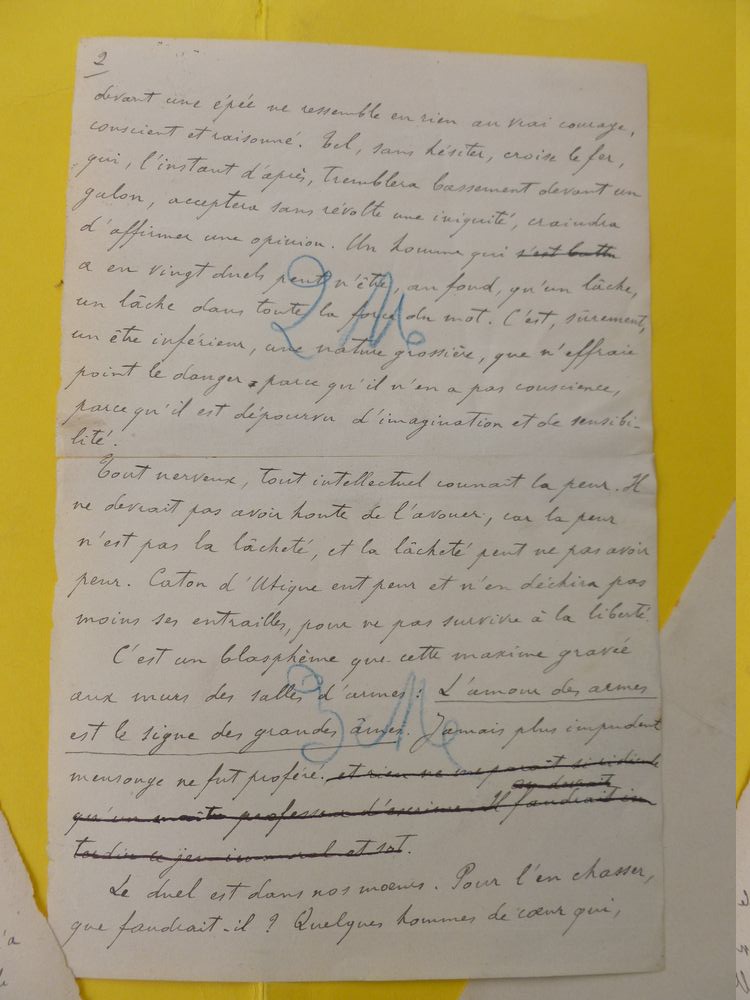 2
devant une épée ne ressemble en rien au vrai courage,
conscient et raisonné. Tel, sans hésiter, croise le fer,
qui, l'instant d'après, tremblera bassement devant un
galon, acceptera sans révolte une iniquité, craindra
d'affirmer une opinion. Un homme qui s'est battu
a eu vingt duels peut n'être, au fond, qu'un lâche,
un lâche dans toute la force du mot. C'est, sûrement,
2 M
un être inférieur, une nature grossière, que n'effraie
point le danger parce qu'il n'en a pas conscience,
parce qu'il est dépourvu d'imagination et de sensibi-
lité.
Tout nerveux, tout intellectuel connait la peur. Il
ne devrait pas avoir honte de l'avouer, car la peur
n'est pas la lâcheté, et la lâcheté peut ne pas avoir
peur. Caton d'Utique eut peur et n'en déchira pas
moins ses entrailles, pour ne pas survivre à la liberté.
C'est un blasphème que cette maxime gravée
aux murs des salles d'armes : L'amour des armes
3 M
est le signe des grandes âmes. Jamais plus impudent
mensonge ne fut proféré. et rien ne me paraît si ridicule
on devrait
qu'un maître professeur d'escrime. Il faudrait in
terdire ce jeu immoral et sot.
Le duel est dans nos mœurs. Pour l'en chasser,
que faudrait-il ? Quelques hommes de cœur qui,